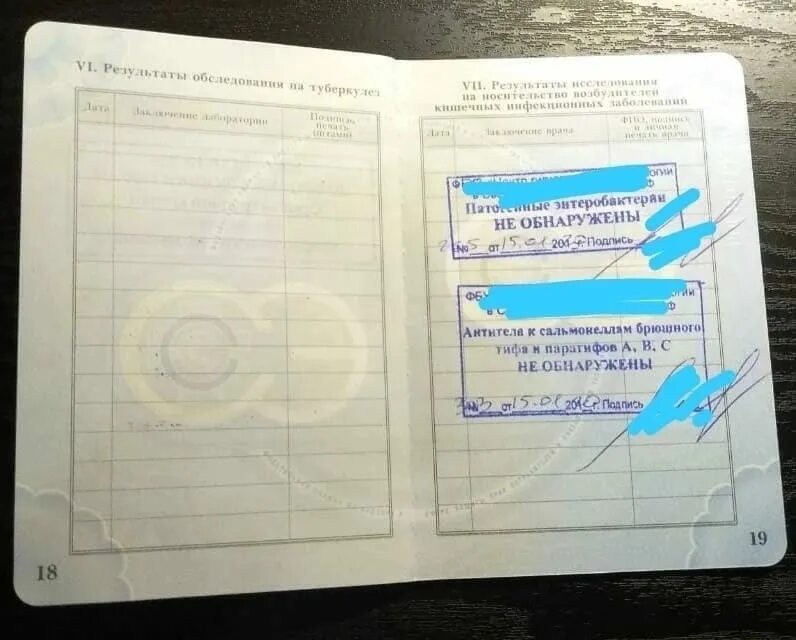 VI. Результаты обследования на туберкулез
Дата
Заключение лаборатории
Подпись,
печать
(штамп)
18
VII. Результаты исследования
на носительство возбудителей
кишечных инфекционных заболеваний
Дата
Заключение врача
ФИО, подпись
и личная
печать врача
Патогенные энтеробактерии
НЕ ОБНАРУЖЕНЫ
№ 5 от 15.01 Подпись
ФБУ
Антитела к сальмонеллам брюшного
тифа и паратифов А, В, С
НЕ ОБНАРУЖЕНЫ
от 15.01 Подпись
19